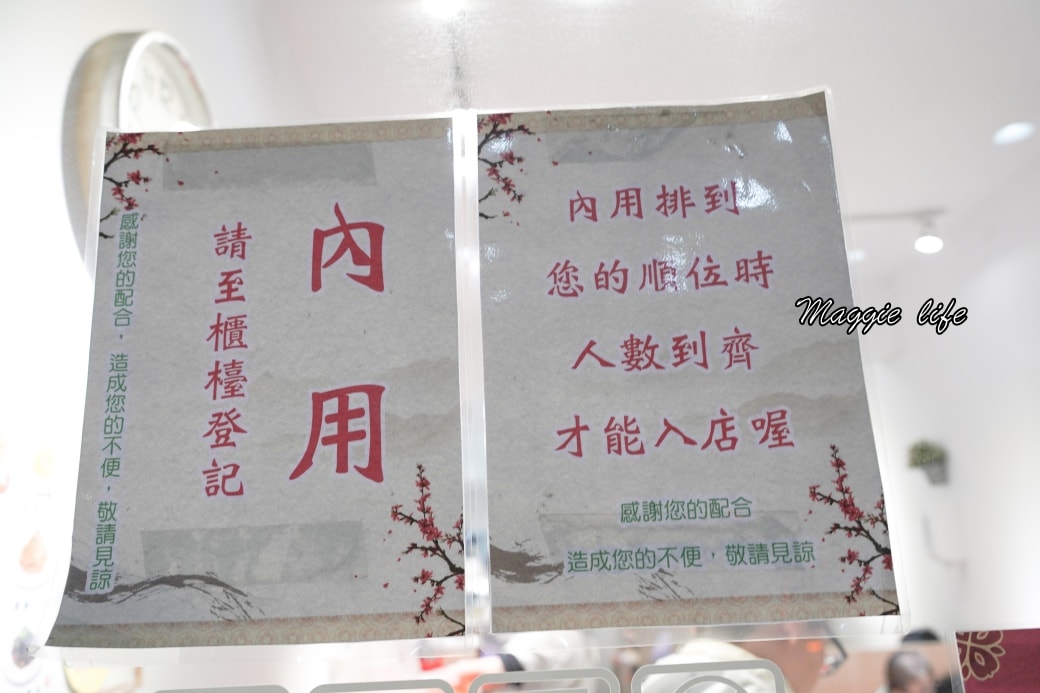 內用
請至櫃檯登記
感謝您的配合，造成您的不便，敬請見諒
內用排到
您的順位時
人數到齊
才能入店喔
感謝您的配合
造成您的不便，敬請見諒
Maggie life